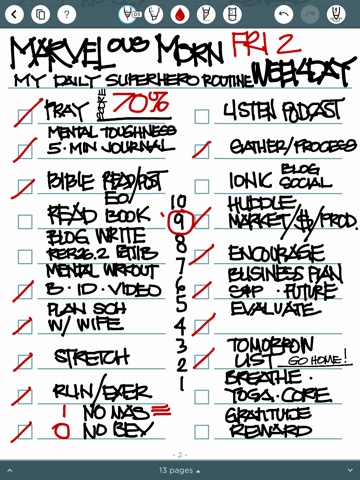 MARVELOUS MORN FRI 2
MY DAILY SUPERHERO ROUTINE WEEKDAY
PRAY SCORE 70%
MENTAL TOUGHNESS
5·MIN JOURNAL
BIBLE READ/POST
EO/
READ BOOK
BLOG WRITE
MENTAL WRKOUT
B·ID·VIDEO
PLAN SCH
W/ WIFE
STRETCH
RUN/EXER
1 NO MAS
0 NO BEV
10
9
8
7
6
5
4
3
2
1
LISTEN PODCAST
GATHER/PROCESS
BLOG
IONIC SOCIAL
HUDDLE
MARKET/$/PROD.
ENCOURAGE
BUSINESS PLAN
S&P · FUTURE
EVALUATE
TOMORROW
LIST GO HOME!
BREATHE·
YOGA·CORE
GRATITUDE
REWARD
- 2 -
13 pages